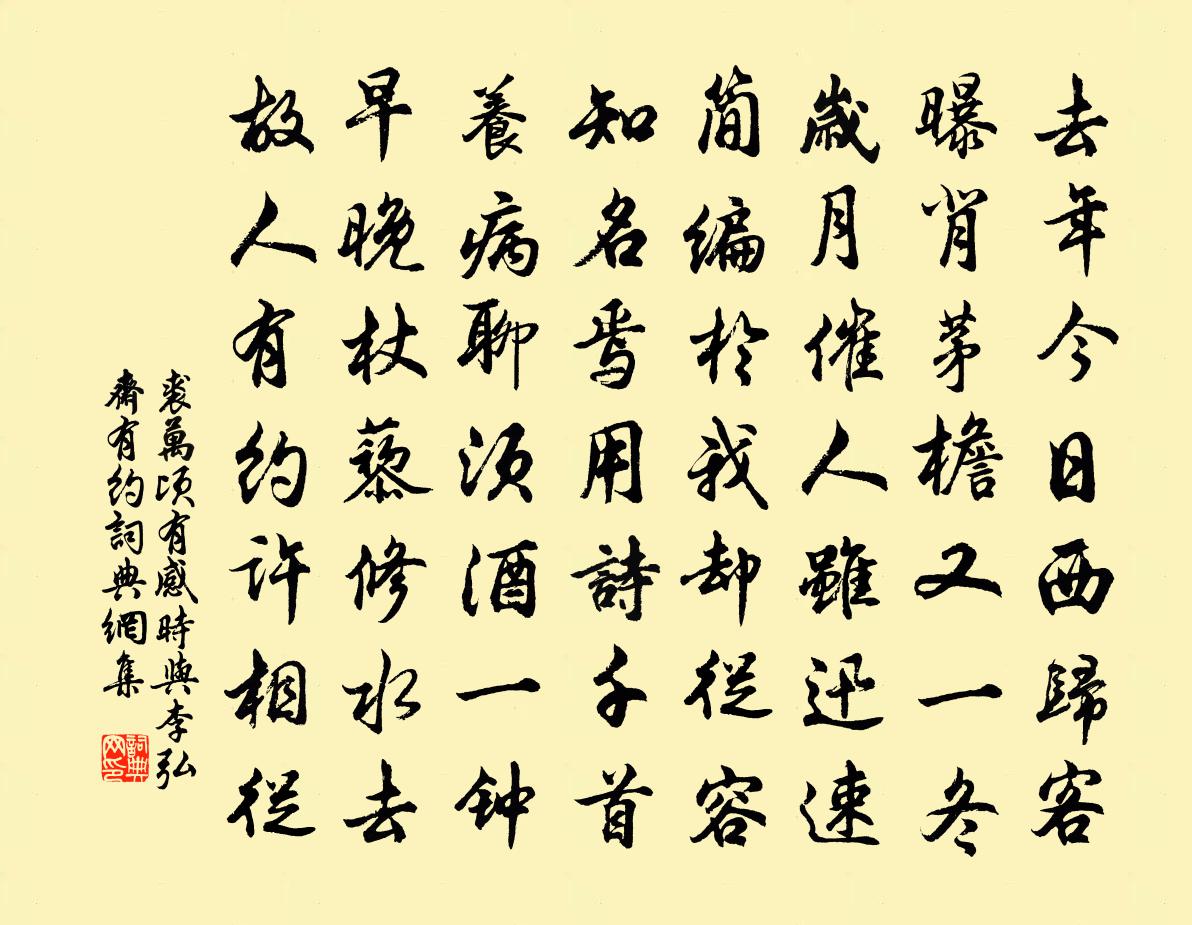 去年今日西歸客
曝背茅檐又一冬
歲月催人雖迅速
簡編於我却從容
知名焉用詩千首
養病聊須酒一钟
早晚杖藜修水去
故人有約許相從
裘萬頃有感時與李弘
齋有約詞典網集
詞典網印